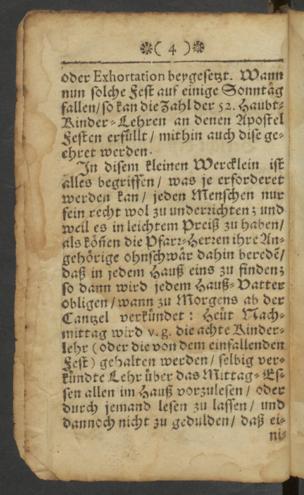 ❋( 4 )❋
oder Exhortation beygesetzt. Wann
nun solche Fest auf einige Sonntäg
fallen/ so kan die Zahl der 52. Haubt-
Kinder-Lehren an denen Apostel
Festen erfüllt/ mithin auch dise ge-
ehret werden.
In disem kleinen Wercklein ist
alles begriffen/ was je erforderet
werden kan/ jeden Menschen nur
fein recht wol zu underrichten; und
weil es in leichtem Preiß zu haben/
als köñen die Pfarr-Herren ihre An-
gehörige ohnschwär dahin beredē/
daß in jedem Hauß eins zu finden;
so dann wird jedem Hauß-Vatter
obligen/ wann zu Morgens ab der
Cantzel verkündet: Heüt Nach-
mittag wird v. g. die achte Kinder-
lehr (oder die von dem einfallenden
Fest) gehalten werden/ selbig ver-
kündte Lehr über das Mittag-Es-
sen allen im Hauß vorzulesen/ oder
durch jemand lesen zu lassen/ und
dannoch nicht zu gedulden/ daß ei-
ni-